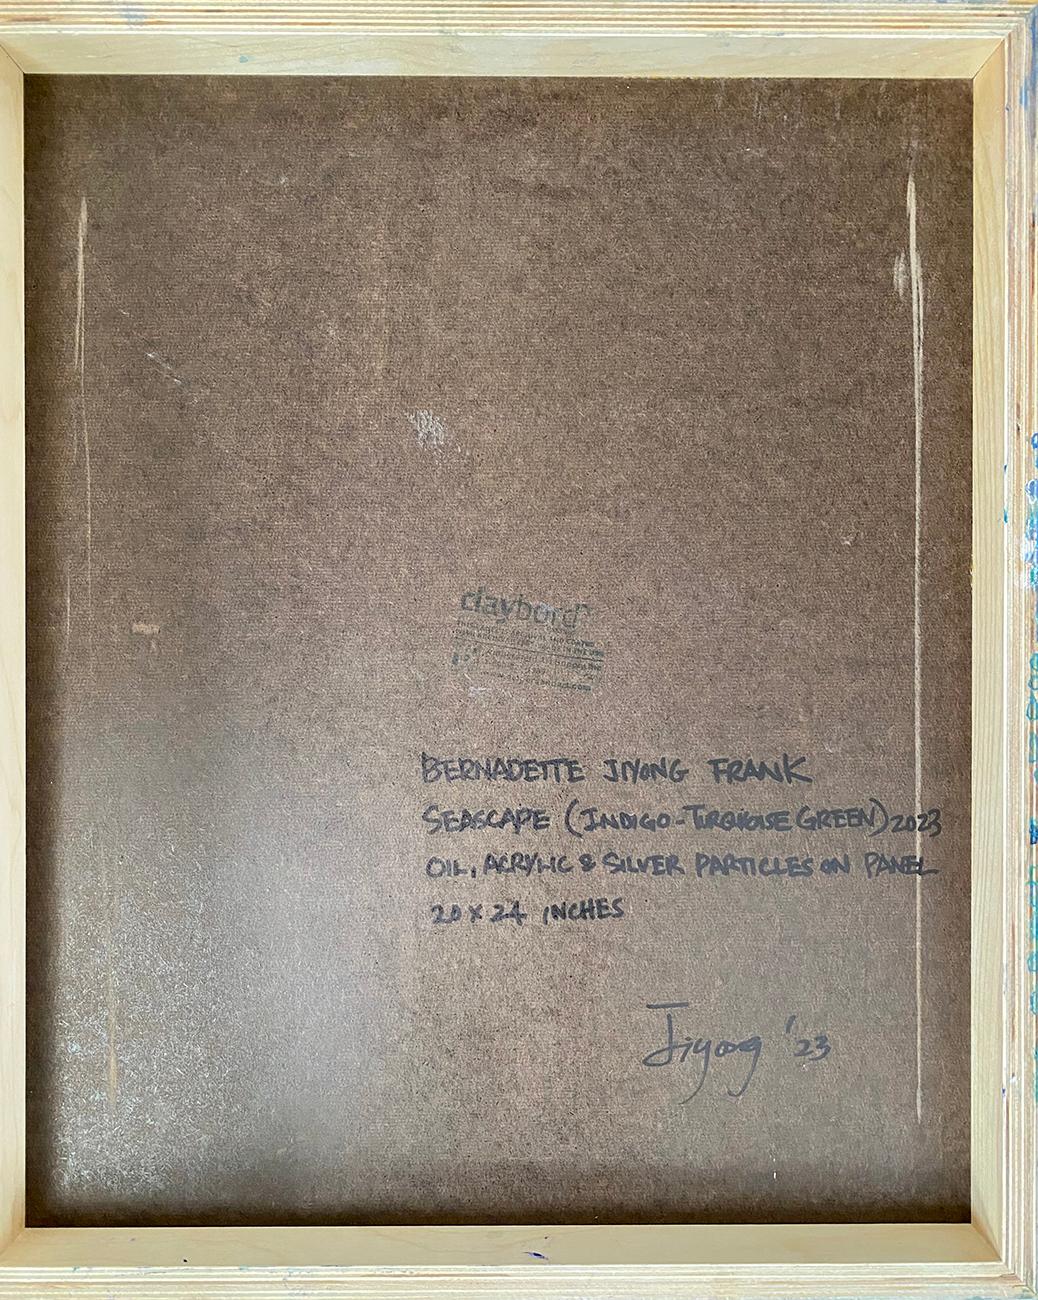 claybord
BERNADETTE JIYONG FRANK
SEASCAPE (INDIGO-TURQUOISE GREEN) 2023
OIL, ACRYLIC & SILVER PARTICLES ON PANEL
20 X 24 INCHES
Jiyong '23